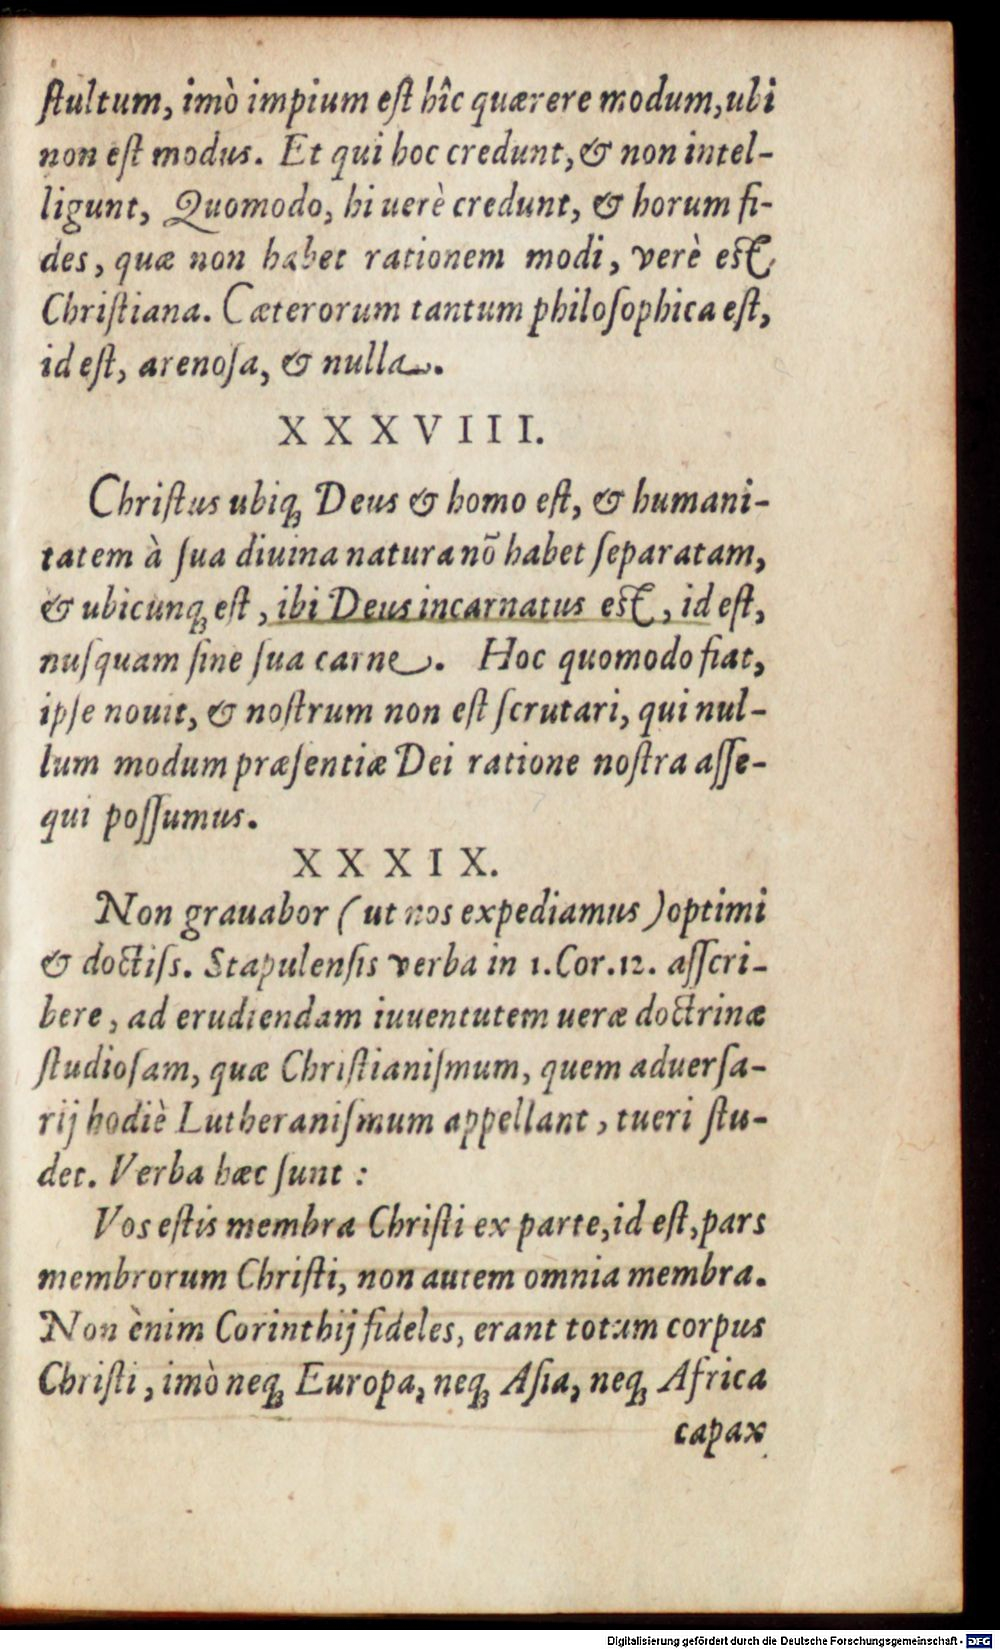 ſtultum, imò impium eſt hîc quærere modum, ubi
non eſt modus. Et qui hoc credunt, & non intel-
ligunt, Quomodo, hi uerè credunt, & horum fi-
des, quæ non habet rationem modi, verè est
Chriſtiana. Cæterorum tantum philoſophica eſt,
id eſt, arenoſa, & nulla.
XXXVIII.
Chriſtus ubiq; Deus & homo eſt, & humani-
tatem à ſua diuina natura nõ habet ſeparatam,
& ubicunq; eſt, ibi Deus incarnatus est, id eſt,
nuſquam ſine ſua carne. Hoc quomodo fiat,
ipſe nouit, & noſtrum non eſt ſcrutari, qui nul-
lum modum præſentiæ Dei ratione noſtra aſſe-
qui poſſumus.
XXXIX.
Non grauabor (ut nos expediamus) optimi
& doctiſs. Stapulenſis verba in 1. Cor. 12. aſſcri-
bere, ad erudiendam iuuentutem ueræ doctrinæ
ſtudioſam, quæ Chriſtianiſmum, quem aduerſa-
rij hodiè Lutheraniſmum appellant, tueri ſtu-
det. Verba hæc ſunt:
Vos eſtis membra Chriſti ex parte, id eſt, pars
membrorum Chriſti, non autem omnia membra.
Non ènim Corinthij fideles, erant totum corpus
Chriſti, imò neq; Europa, neq; Aſia, neq; Africa
capax
Digitalisierung gefördert durch die Deutsche Forschungsgemeinschaft - DFG